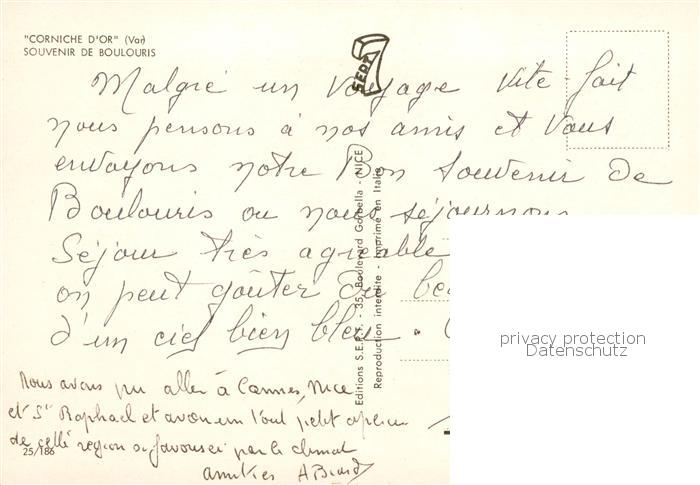 "CORNICHE D'OR" (Var)
SOUVENIR DE BOULOURIS
SEPT 7
Malgré un voyage vite-fait
nous pensons à nos amis et vous
envoyons notre Bon Souvenir de
Boulouris ou nous séjournons
Séjour très agréable
on peut goûter du
d'un ciel bien bleu.
Nous avons pu aller à Cannes, Nice
et St Raphael et avons un tout petit aperçu
de cette région si favorisée par le climat
amitiés
25/186
Editions S.E.P.T. - 35, Boulevard Gorbella - NICE
Reproduction interdite - Imprimé en Italie
privacy protection
Datenschutz